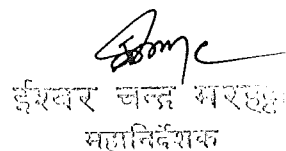 ईश्वर चन्द्र मरहट्टा
महानिर्देशक